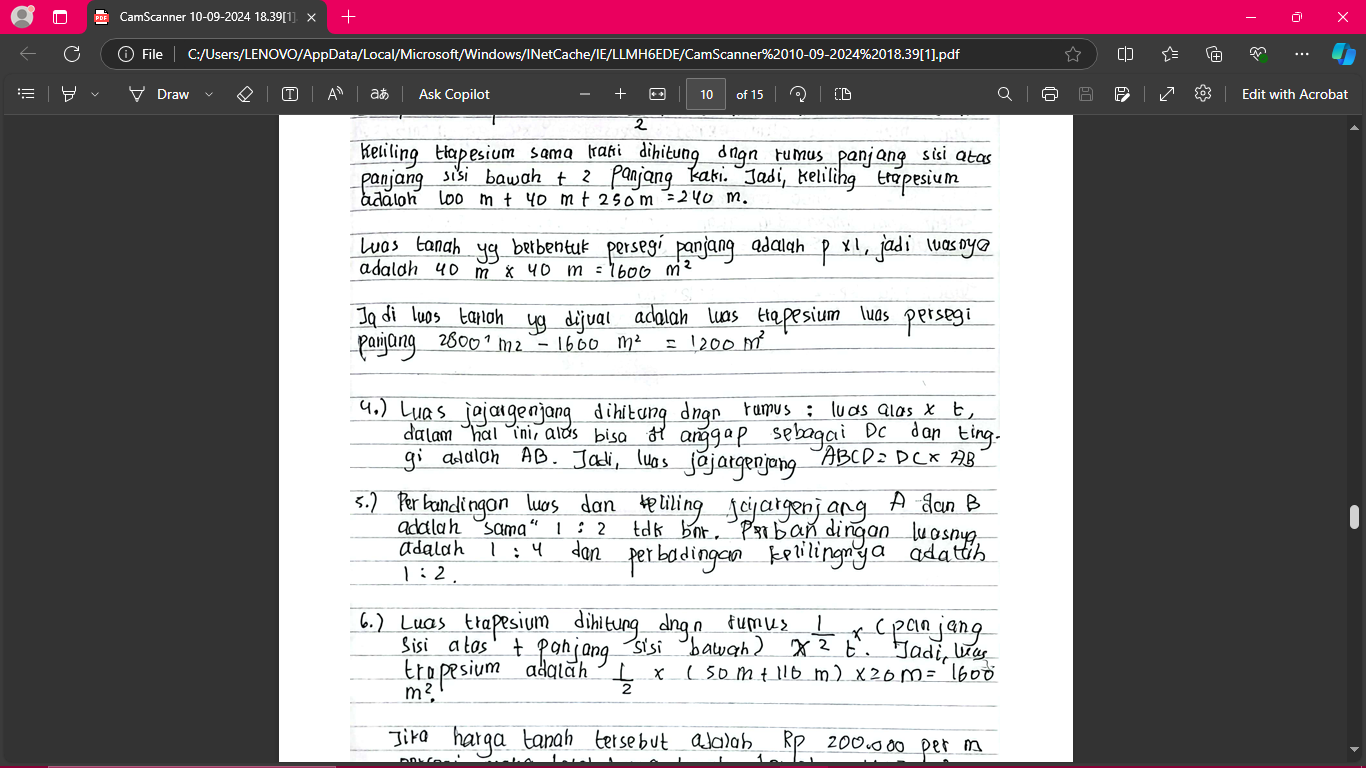 CamScanner 10-09-2024 18.39[1]
File
C:/Users/LENOVO/AppData/Local/Microsoft/Windows/INetCache/IE/LLMH6EDE/CamScanner%2010-09-2024%2018.39[1].pdf
Draw
Ask Copilot
10 of 15
Edit with Acrobat
2
Keliling trapesium sama kaki dihitung dngn rumus panjang sisi atas
panjang sisi bawah + 2 panjang kaki. Jadi, keliling trapesium
adalah 100 m + 40 m + 250 m = 240 m.
Luas tanah yg berbentuk persegi panjang adalah p x l, jadi luasnya
adalah 40 m x 40 m = 1600 m²
Jadi luas tanah yg dijual adalah luas trapesium luas persegi
panjang 2800 m2 - 1600 m² = 1200 m²
4.) Luas jajargenjang dihitung dngn rumus : luas alas x t,
dalam hal ini, alas bisa di anggap sebagai DC dan ting-
gi adalah AB. Jadi, luas jajargenjang ABCD = DC x AB
5.) Perbandingan luas dan keliling jajargenjang A dan B
adalah sama" 1 : 2 tdk bnr. Perbandingan luasnya
adalah 1 : 4 dan perbadingan kelilingnya adalah
1 : 2.
6.) Luas trapesium dihitung dngn rumus 1/2 x (panjang
sisi atas + panjang sisi bawah) x t. Jadi, luas
trapesium adalah 1/2 x (50 m + 110 m) x 20 m = 1600
m².
Jika harga tanah tersebut adalah Rp 200.000 per m